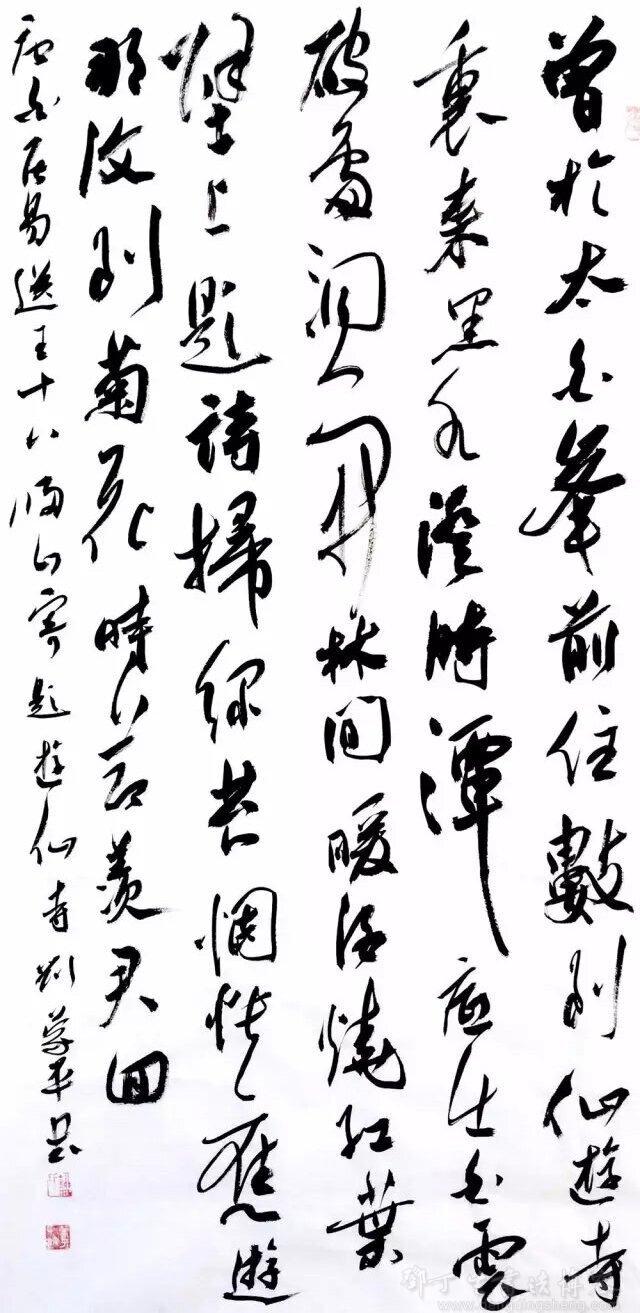 曾於太白峯前住數到仙遊寺
裏來黑水澄時潭底出白雲
破處洞門開林間暖酒燒紅葉
上題詩掃綠苔惆悵舊遊
那復到菊花時節羨君回
唐白居易送王十八歸山寄題遊仙寺 劉平書